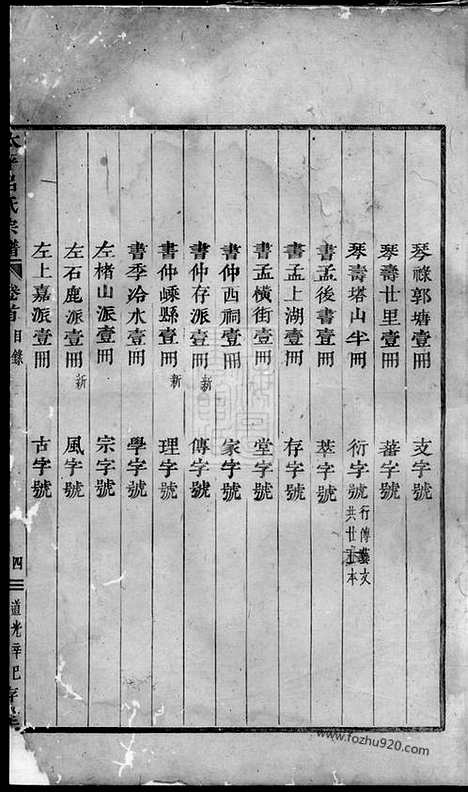 琴祿郭塘壹冊 支字號
琴壽廿里壹冊 蕃字號
琴壽塔山半冊 衍字號 行傳藝文
共廿本
書孟後書壹冊 萃字號
書孟上湖壹冊 存字號
書孟橫街壹冊 堂字號
書仲西祠壹冊 家字號
書仲存派壹冊 新 傳字號
書仲嵊縣壹冊 新 理字號
書季冶水壹冊 學字號
左楮山派壹冊 宗字號
左石鹿派壹冊 新 風字號
左上嘉派壹冊 古字號
呂氏宗譜 卷首 目錄 四 道光辛巳
www.fozhu920.com